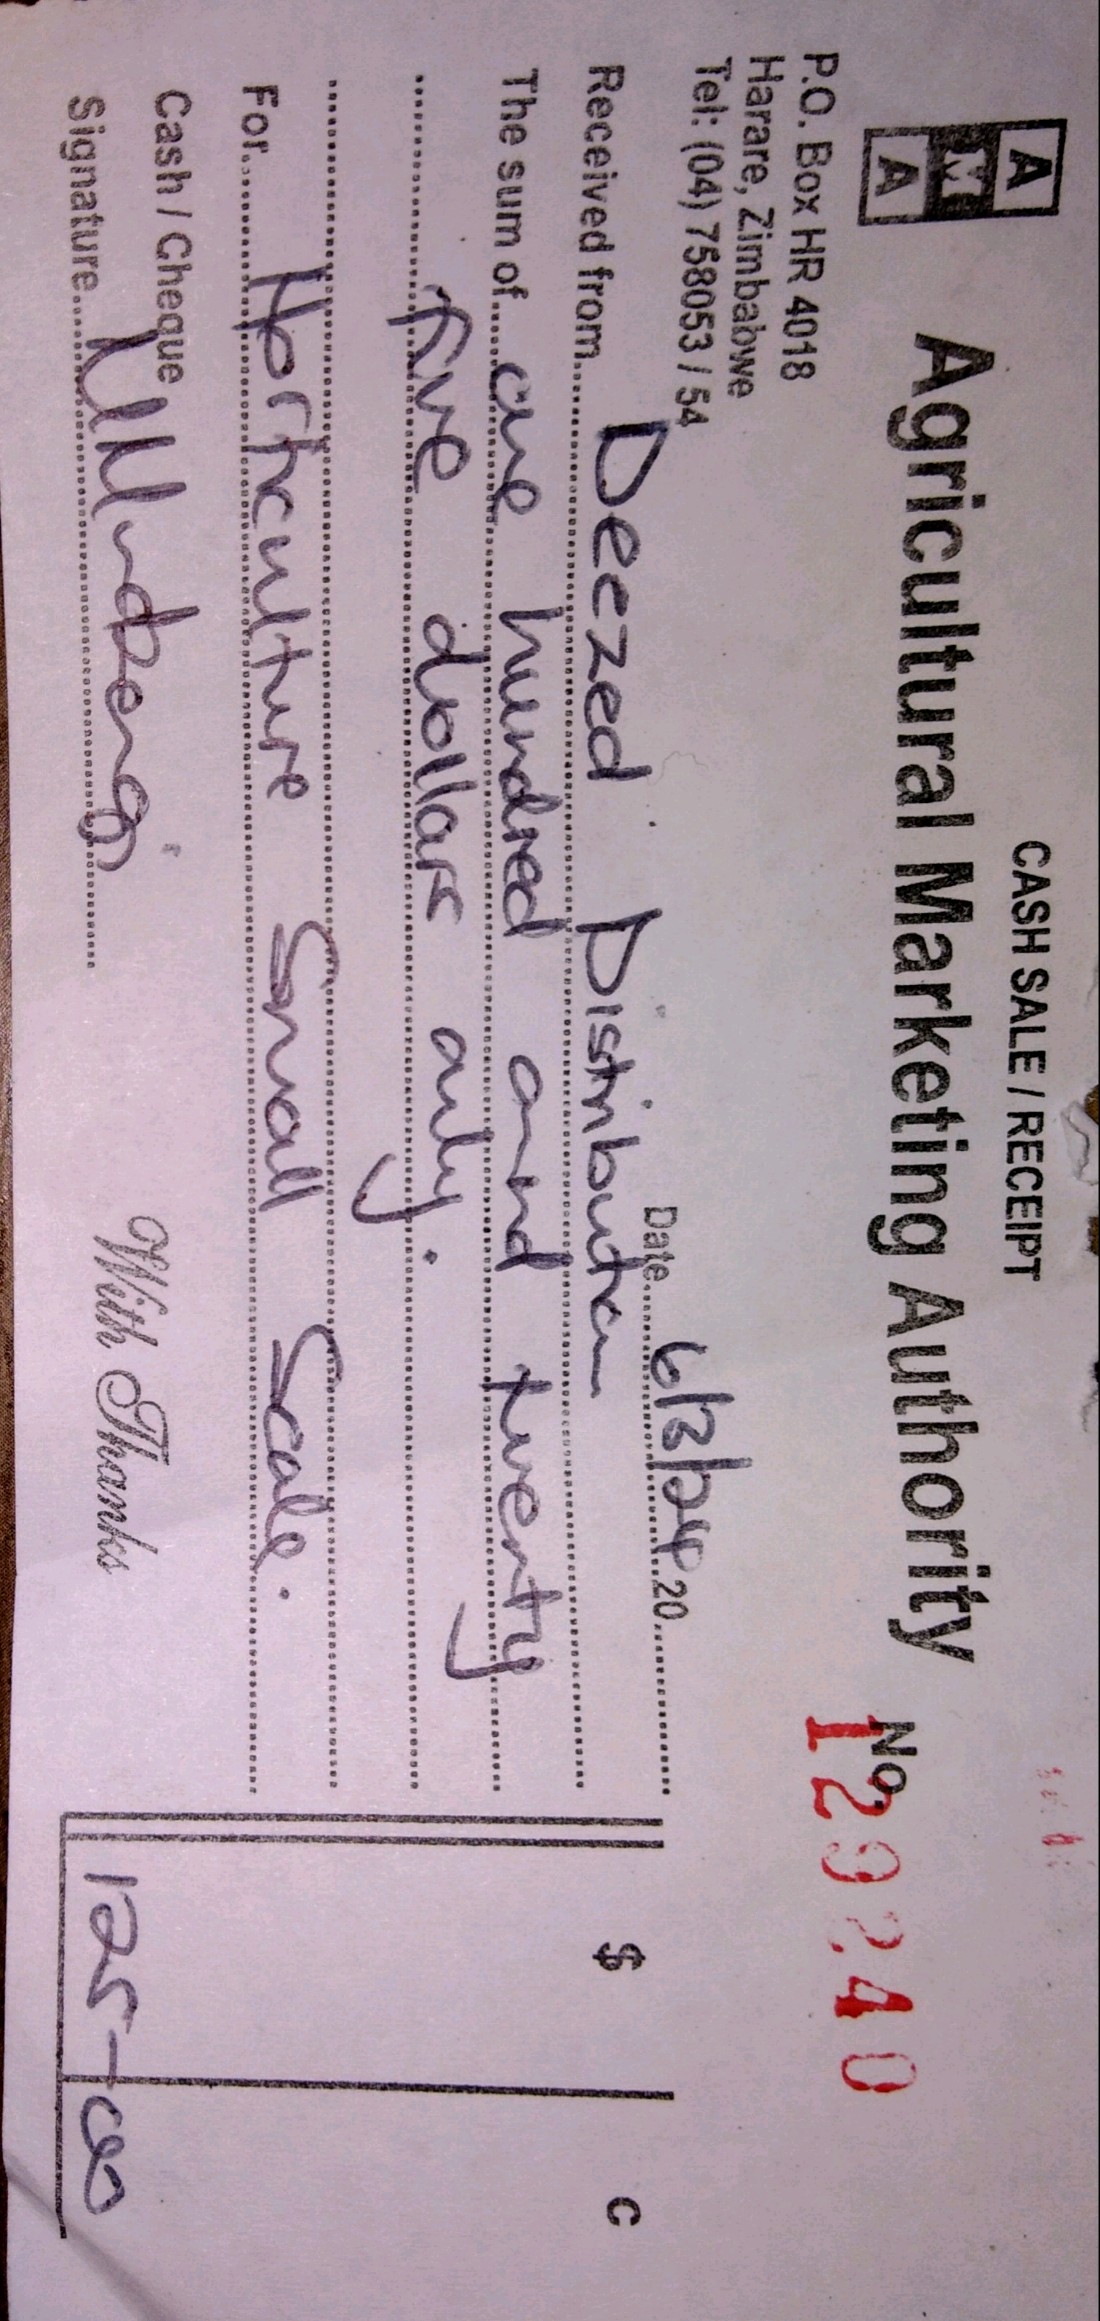 CASH SALE / RECEIPT
A
M
A
Agricultural Marketing Authority
P.O. Box HR 4018
Harare, Zimbabwe
Tel: (04) 758053 / 54
No. 129240
Date 6/3/24 20
Received from Deezed Distribution
The sum of one hundred and twenty
five dollars only.
For Horticulture Small Scale.
Cash / Cheque
Signature
With Thanks
$ c
125-00